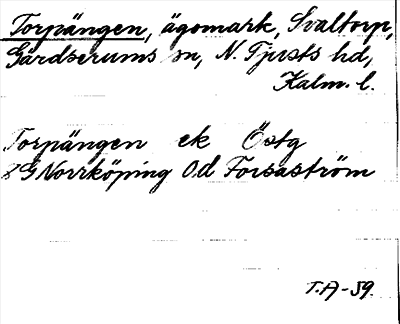 Torpängen, ägomark, Svaltorp,
Gärdserums sn, N. Tjusts hd,
Kalm. l.
Torpängen ek Östg
8G Norrköping Od Forsaström
T.A-59.